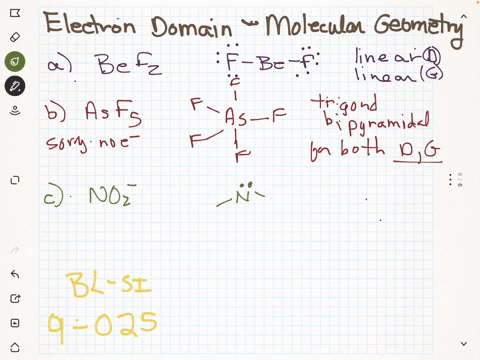 Electron Domain - Molecular Geometry
a) BeF2 :F-Be-F: linear (D)
linear (G)
b) AsF5 F F As F F F trigond
sorry no e- bipyramidal
for both D, G
c). NO2- N
BL-SI
9-025